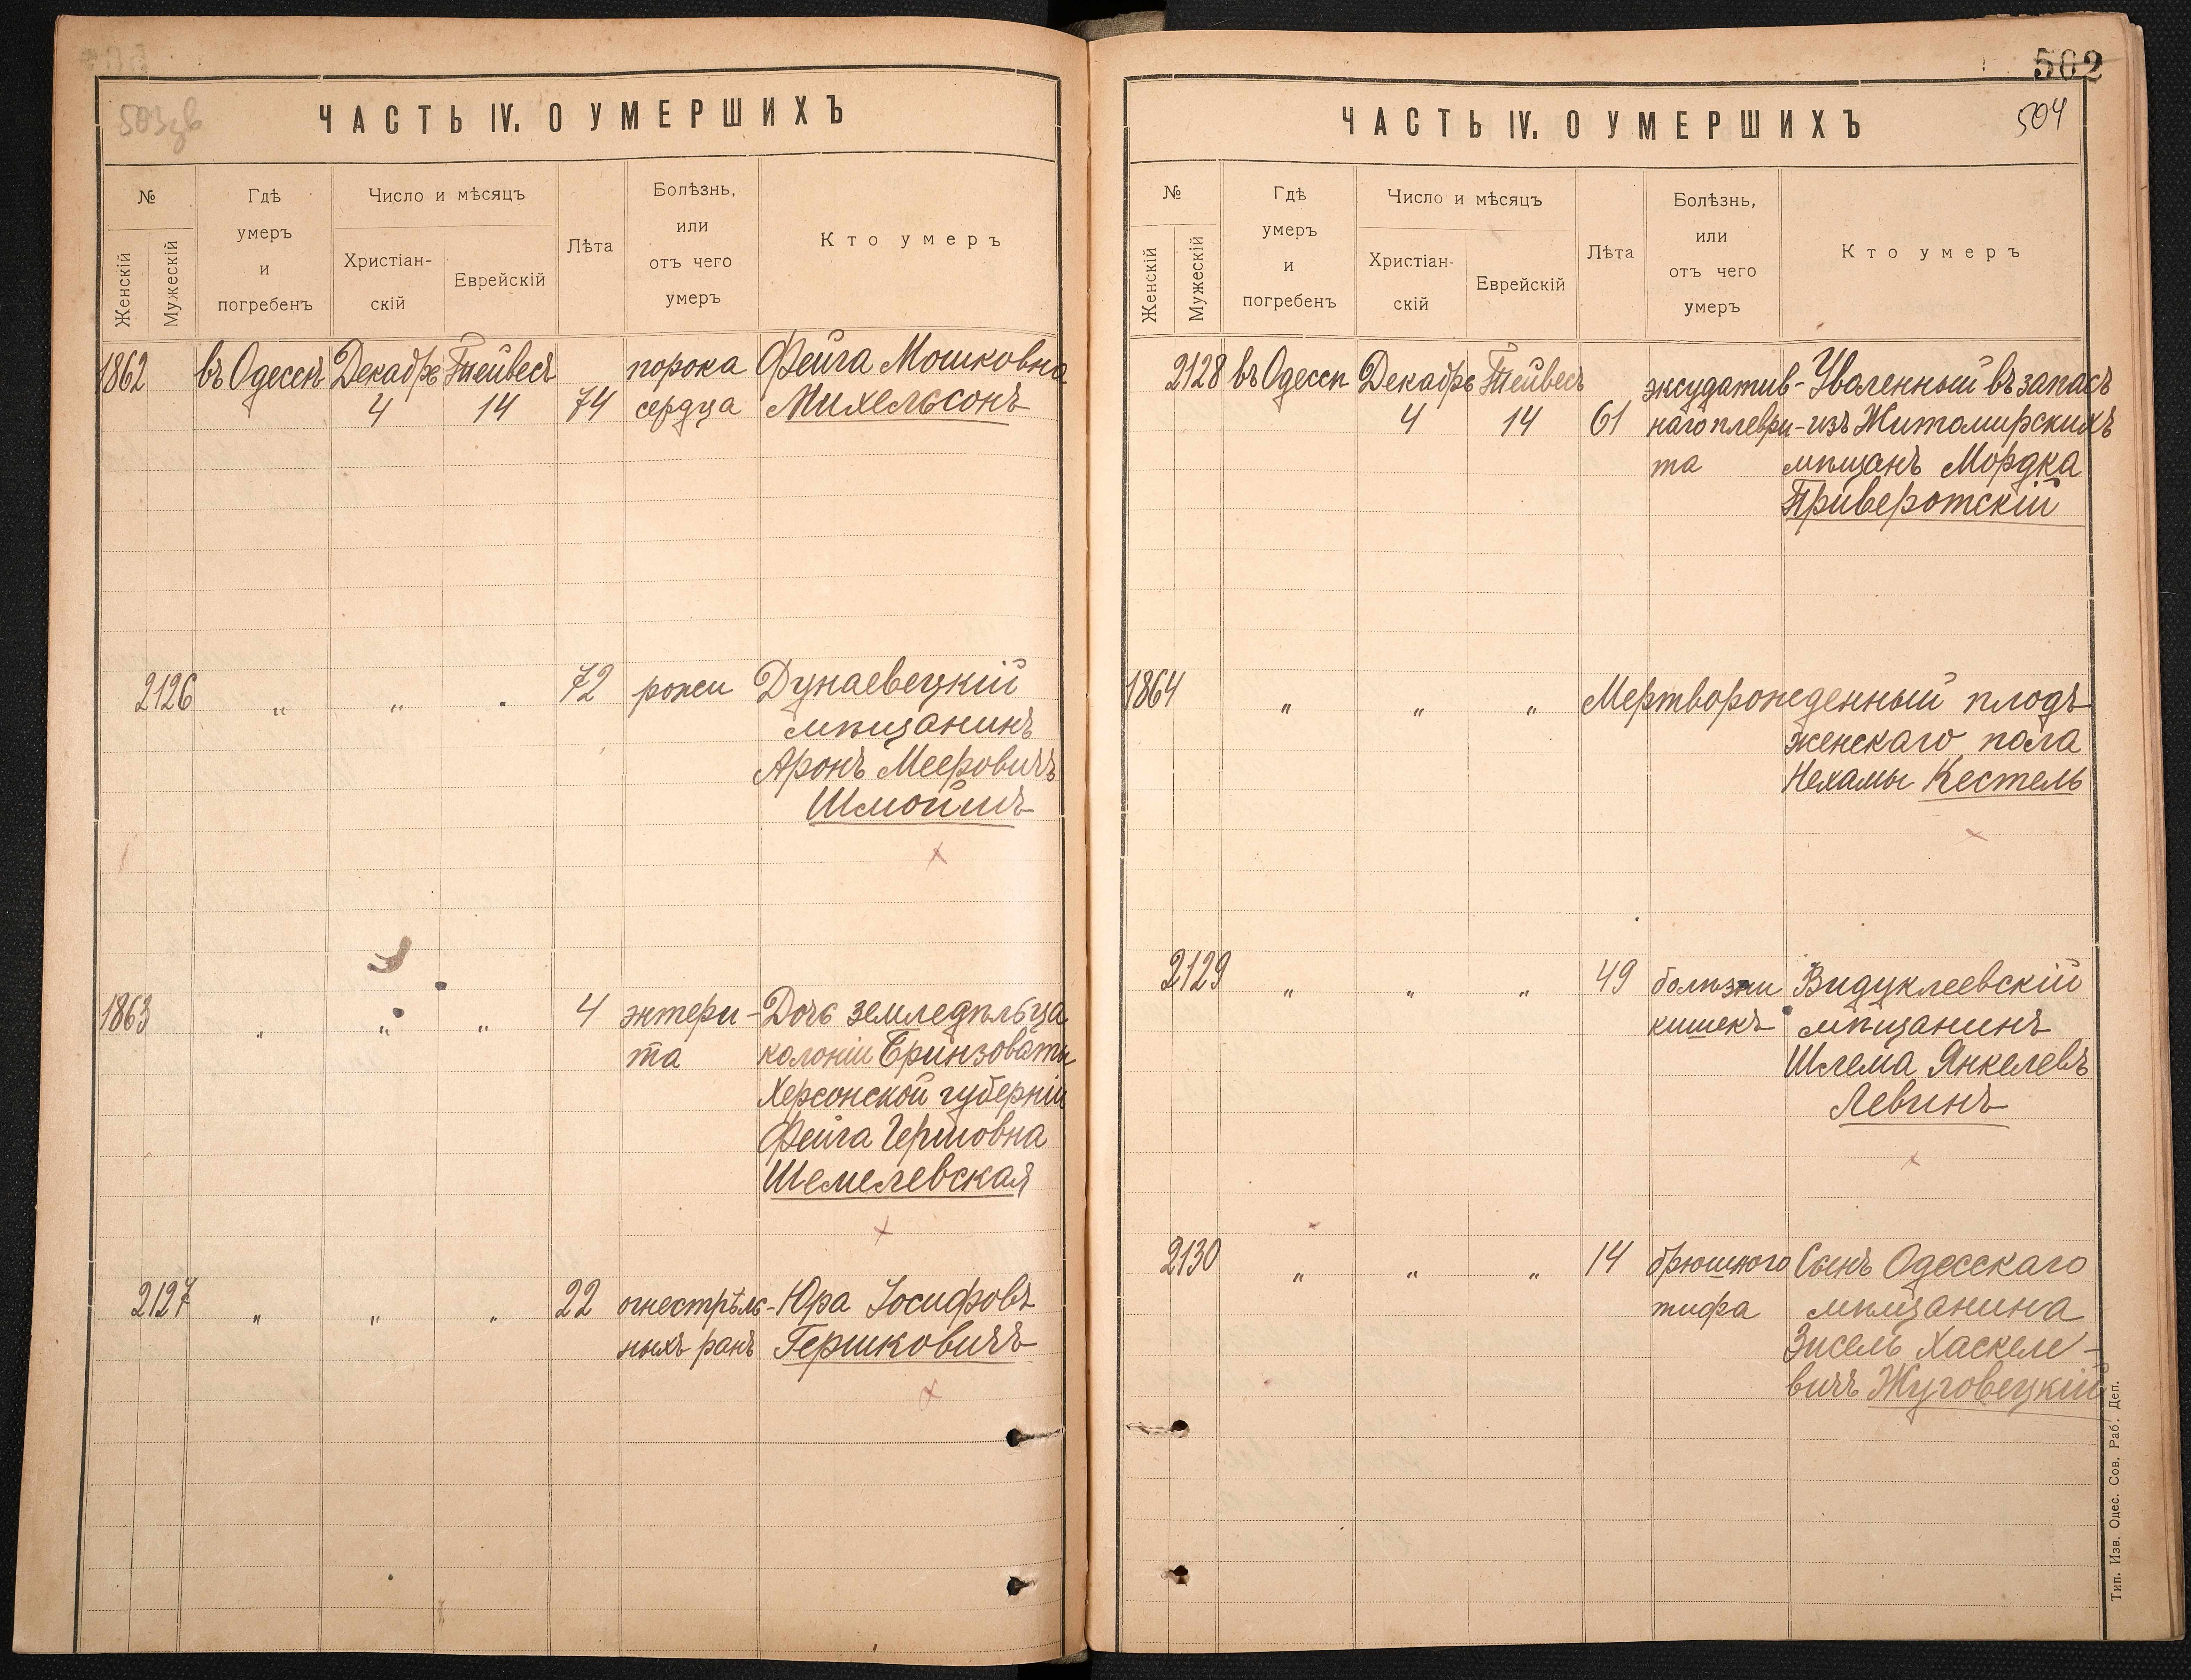 503 зв
ЧАСТЬ IV. О УМЕРШИХЪ
№
Женскій
Мужескій
Гдѣ
умеръ
и
погребенъ
Число и мѣсяцъ
Христіан-
скій
Еврейскій
Лѣта
Болѣзнь,
или
отъ чего
умеръ
Кто умеръ
1862 въ Одессѣ Декабрь Тейвесъ порока Фейга Мошковна
4 14 74 сердца Михельсонъ
2126 „ „ „ 72 рожи Дунаевецкій
мѣщанинъ
Аронъ Мееровичъ
Шмойшъ
1863 „ „ „ 4 энтери- Дочь земледѣльца
та колоніи Бринзоваты
Херсонской губерніи
Фейга Гершовна
Шемелевская
2127 „ „ „ 22 огнестрѣль- Юра Іосифовъ
ныхъ ранъ Гершковичъ
502
504
ЧАСТЬ IV. О УМЕРШИХЪ
№
Женскій
Мужескій
Гдѣ
умеръ
и
погребенъ
Число и мѣсяцъ
Христіан-
скій
Еврейскій
Лѣта
Болѣзнь,
или
отъ чего
умеръ
Кто умеръ
2128 въ Одессѣ Декабрь Тейвесъ эксудатив- Уволенный въ запасъ
4 14 61 наго плеври- изъ Житомирскихъ
та мѣщанъ Мордка
Приворотскій
1864 „ „ „ Мертворожденный плодъ
женскаго пола
Нехамы Кестель
2129 „ „ „ 49 болѣзни Видуклеевскій
кишекъ мѣщанинъ
Шлема Янкелевъ
Левинъ
2130 „ „ „ 14 брюшного Сынъ Одесскаго
тифа мѣщанина
Зисель Хаскеле-
вичъ Жуговецкій
Тип. Изв. Одес. Сов. Раб. Деп.